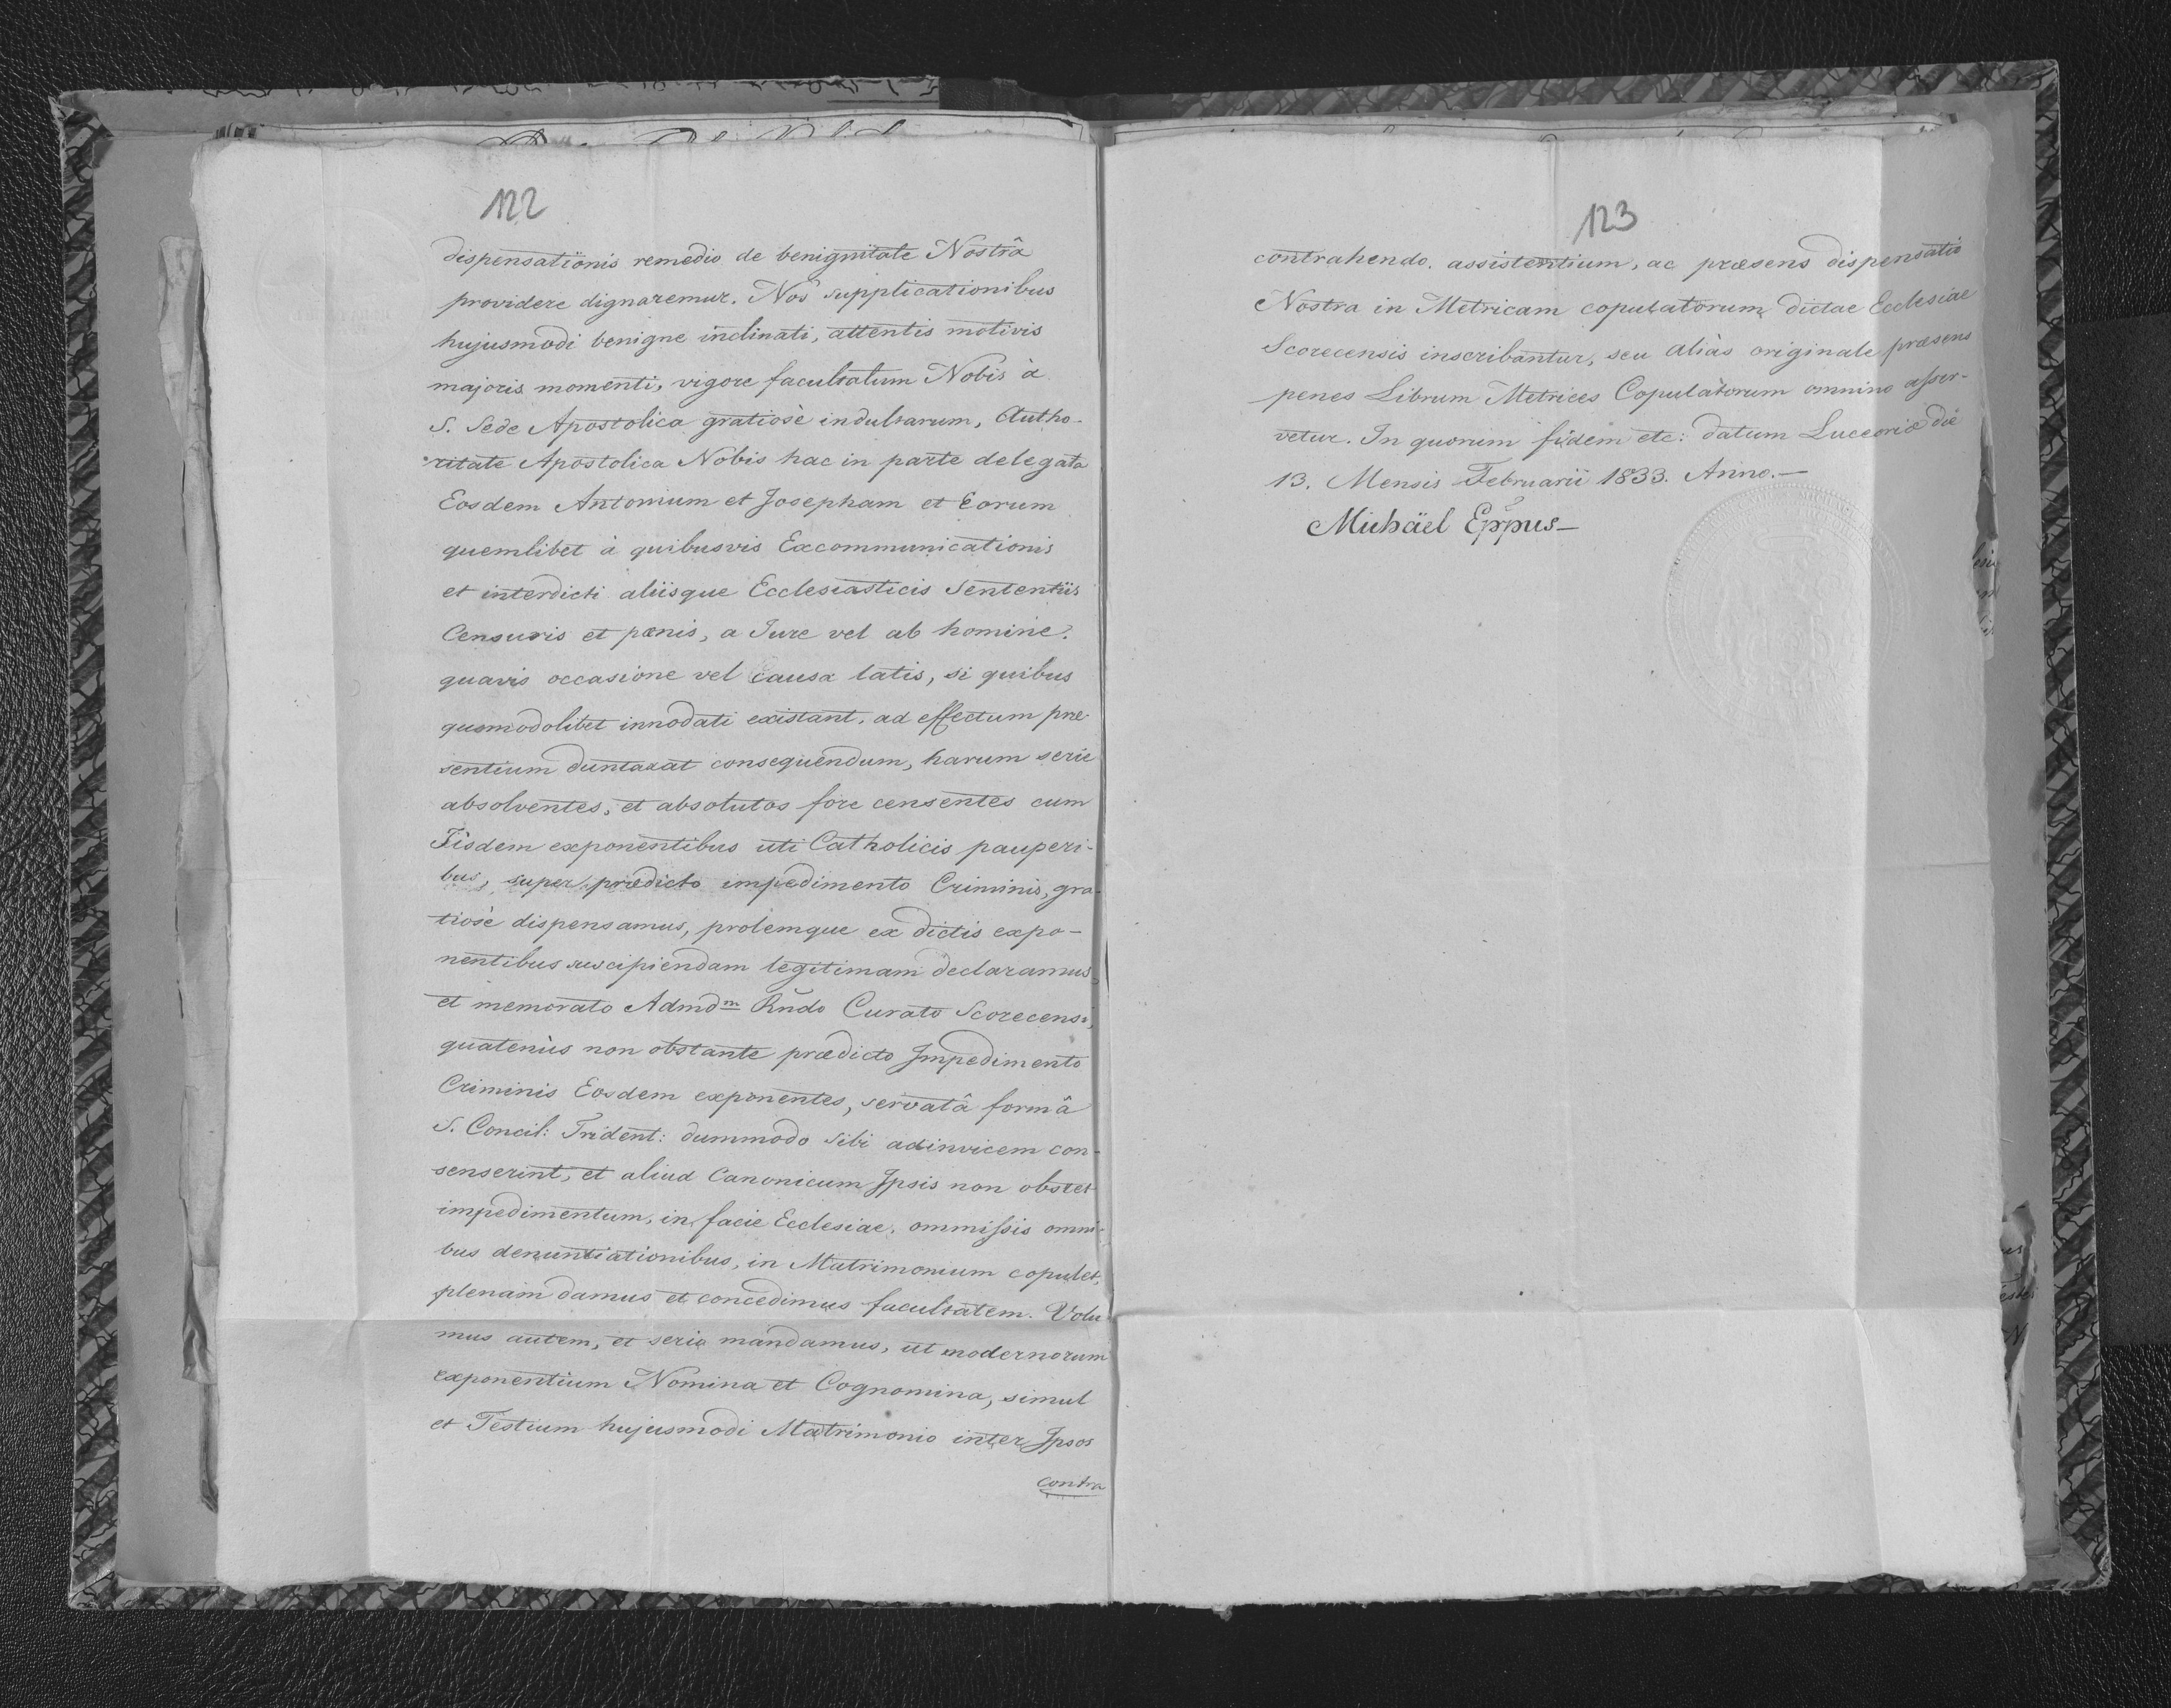 122
dispensationis remedio de benignitate Nostrâ
providere dignaremur. Nos supplicationibus
hujusmodi benigne inclinati, attentis motivis
majoris momenti, vigore facultatum Nobis à
S. Sede Apostolica gratiosè indultarum, Autho-
ritate Apostolica Nobis hac in parte delegata
Eosdem Antonium et Josepham et Eorum
quemlibet à quibusvis Excommunicationis
et interdicti aliisque Ecclesiasticis Sententiis
Censuris et pœnis, a Jure vel ab homine,
quavis occasione vel causa latis, si quibus
quomodolibet innodati existant, ad effectum præ-
sentium duntaxat consequendum, harum serie
absolventes, et absolutos fore censentes cum
Iisdem exponentibus uti Catholicis pauperi-
bus, super prædicto impedimento Criminis, gra-
tiosè dispensamus, prolemque ex dictis expo-
nentibus suscipiendam legitimam declaramus,
et memorato Admdm Rndo Curato Scorecensi,
quatenùs non obstante prædicto Impedimento
Criminis Eosdem exponentes, servatâ formâ
S. Concil: Trident: dummodo Sibi adinvicem con-
senserint, et aliud Canonicum Ipsis non obstet
impedimentum, in facie Ecclesiae, ommissis omni-
bus denuntiationibus, in Matrimonium copulet,
plenam damus et concedimus facultatem. Volu
mus autem, et serio mandamus, ut modernorum
exponentium Nomina et Cognomina, simul
et Testium hujusmodi Matrimonio inter Ipsos
contra
123
contrahendo assistentium, ac præsens dispensatio
Nostra in Metricam copulatorum dictae Ecclesiae
Scorecensis inscribantur, seu aliàs originale præsens
penes Librum Metrices Copulatorum omnino asser-
vetur. In quorum fidem etc: datum Luceoriæ die
13. Mensis Februarii 1833. Anno.—
Michäel Eppus—